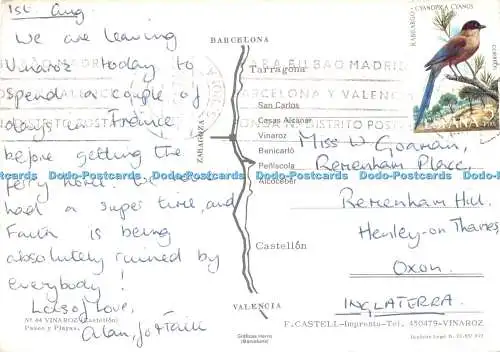 1st Aug.
We are leaving
Vinaroz today to
spend a couple of
days in France
before getting the
ferry home. We have
had a super time, and
Faith is being
absolutely ruined by
everybody!
Lots of Love,
Alan, Jo + Faith
Nº 44 VINAROZ (Castellón)
Paseo y Playas.
BARCELONA
Tarragona
San Carlos
Casas Alcanar
Vinaroz
Benicarló
Peñíscola
Alcoceber
Castellón
VALENCIA
ZARAGOZA
Gráficas Herro
(Barcelona)
RABILARGO - CYANOPICA CYANUS
CORREOS
ESPAÑA
PARA BILBAO MADRID
BARCELONA Y VALENCIA
DISTRITO POSTAL
Miss W. Goaman,
Remenham Place,
Remenham Hill,
Henley-on Thames,
Oxon.
INGLATERRA.
F. CASTELL-Imprenta-Tel. 450479-VINAROZ
Dodo-Postcards Dodo-Postcards Dodo-Postcards Dodo-Postcards Dodo-Postcards